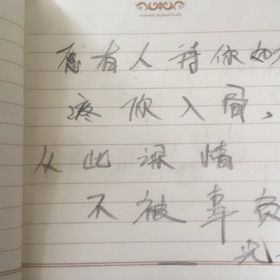 愿有人待你如
疼你入骨，
从此深情
不被辜负
光